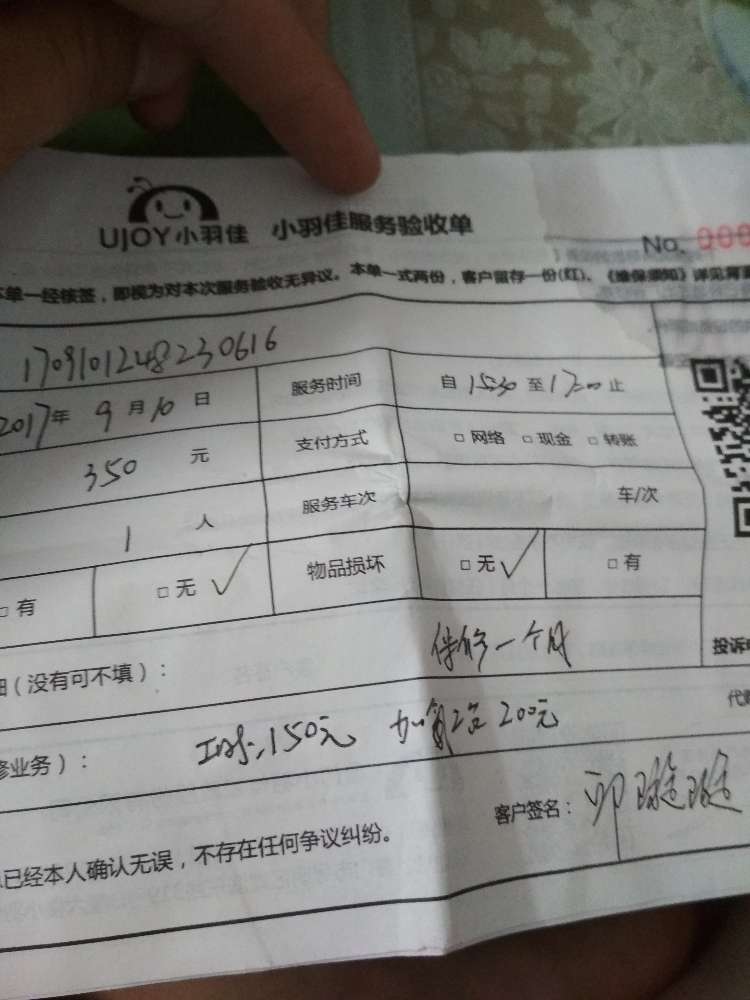 UJOY小羽佳 小羽佳服务验收单
No. 000
本单一经核签，即视为对本次服务验收无异议。本单一式两份，客户留存一份(红)、《维保须知》详见背面
1709101248230616
2017年 9月10日 服务时间 自 15:30 至 17:00 止
350 元 支付方式 □ 网络 □ 现金 □ 转账
1 人 服务车次 车/次
□ 有 □ 无 ✓ 物品损坏 □ 无 ✓ □ 有
(没有可不填)： 保修一个月
投诉
修业务)： 150元 加氟 200元
客户签名：
已经本人确认无误，不存在任何争议纠纷。